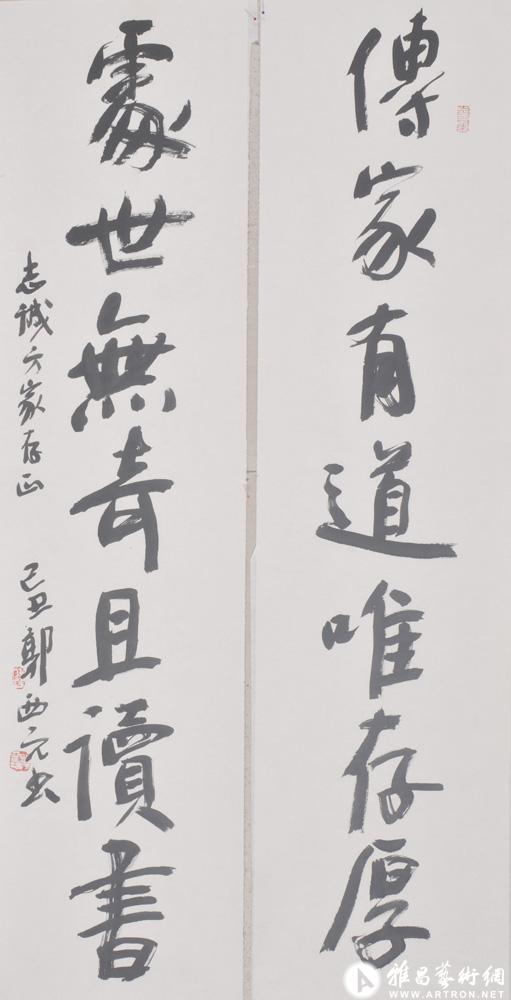 傳家有道唯存厚
處世無奇且讀書
志誠方家存正
己丑郭西元书
雅昌藝術網
WWW.ARTRON.NET